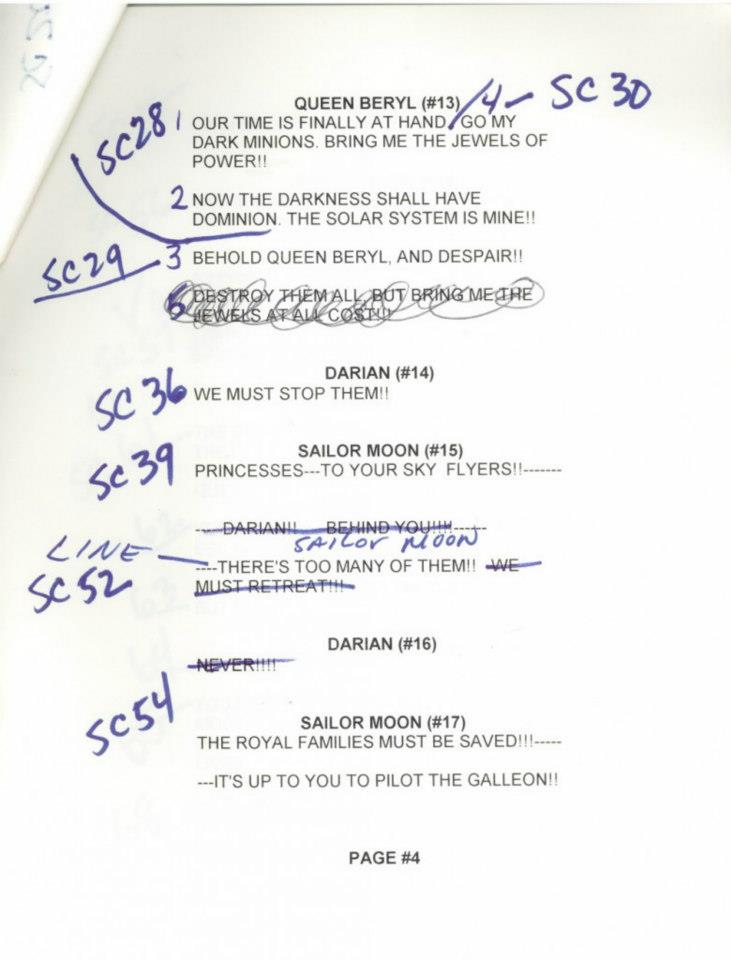 QUEEN BERYL (#13) 4 - SC 30
SC28 1 OUR TIME IS FINALLY AT HAND. GO MY
DARK MINIONS. BRING ME THE JEWELS OF
POWER!!
2 NOW THE DARKNESS SHALL HAVE
DOMINION. THE SOLAR SYSTEM IS MINE!!
SC29 3 BEHOLD QUEEN BERYL, AND DESPAIR!!
5 DESTROY THEM ALL, BUT BRING ME THE
JEWELS AT ALL COST!!!
DARIAN (#14)
SC 36 WE MUST STOP THEM!!
SAILOR MOON (#15)
SC 39 PRINCESSES---TO YOUR SKY FLYERS!!-------
---- DARIAN!! BEHIND YOU!!!!------
LINE SAILOR MOON
----THERE'S TOO MANY OF THEM!! WE
SC 52 MUST RETREAT!!!
DARIAN (#16)
NEVER!!!!
SC54 SAILOR MOON (#17)
THE ROYAL FAMILIES MUST BE SAVED!!!-----
---IT'S UP TO YOU TO PILOT THE GALLEON!!
PAGE #4